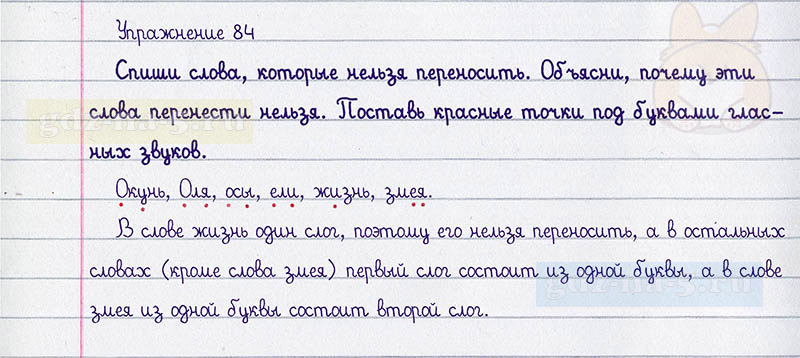 Упражнение 84
Спиши слова, которые нельзя переносить. Объясни, почему эти
слова перенести нельзя. Поставь красные точки под буквами глас-
ных звуков.
Окунь, Оля, осы, ели, жизнь, змея.
В слове жизнь один слог, поэтому его нельзя переносить, а в остальных
словах (кроме слова змея) первый слог состоит из одной буквы, а в слове
змея из одной буквы состоит второй слог.
gdz-na-5.ru
gdz-na-5.ru